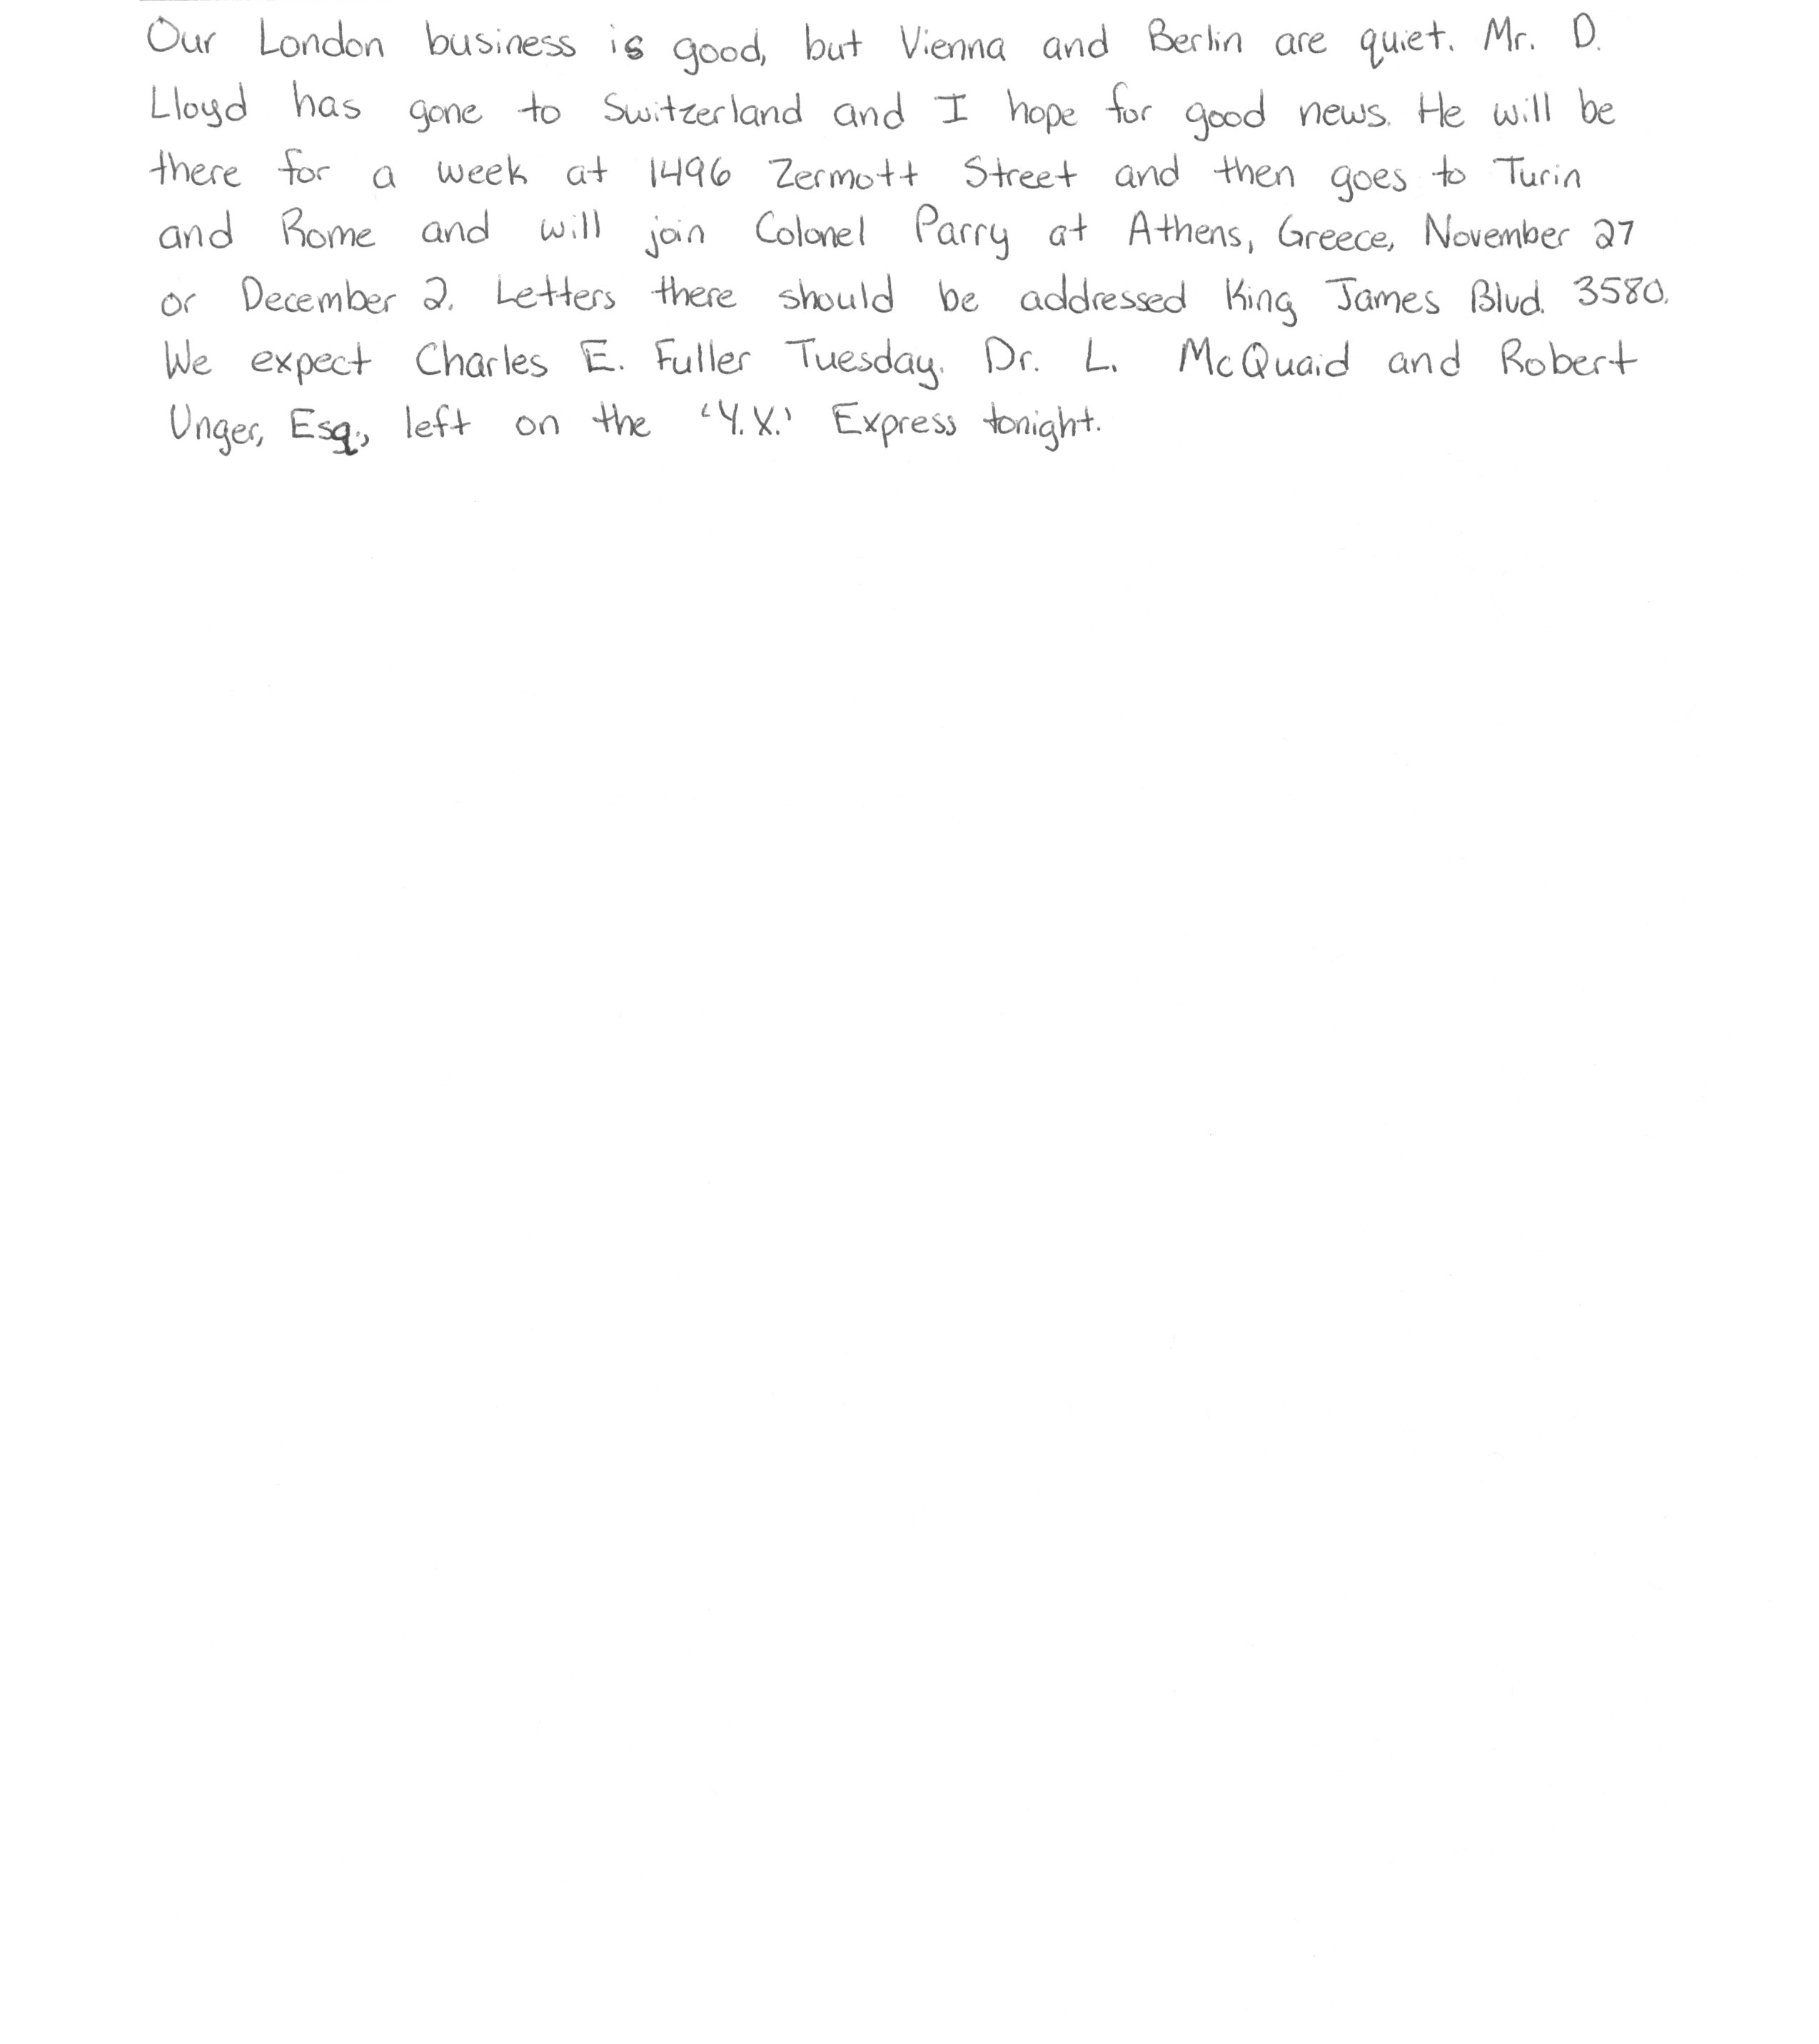 Our London business is good, but Vienna and Berlin are quiet. Mr. D.
Lloyd has gone to Switzerland and I hope for good news. He will be
there for a week at 1496 Zermott Street and then goes to Turin
and Rome and will join Colonel Parry at Athens, Greece, November 27
or December 2. Letters there should be addressed King James Blvd. 3580.
We expect Charles E. Fuller Tuesday. Dr. L. McQuaid and Robert
Unger, Esq., left on the 'Y.X.' Express tonight.